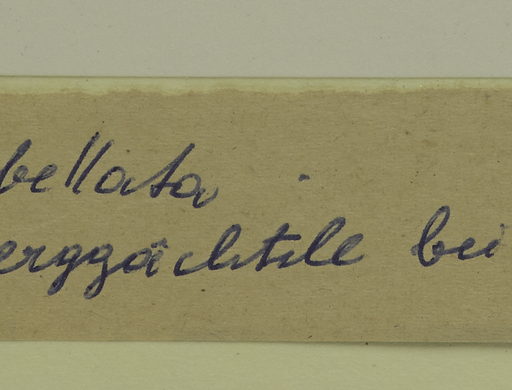 bellata
erggächtile bei